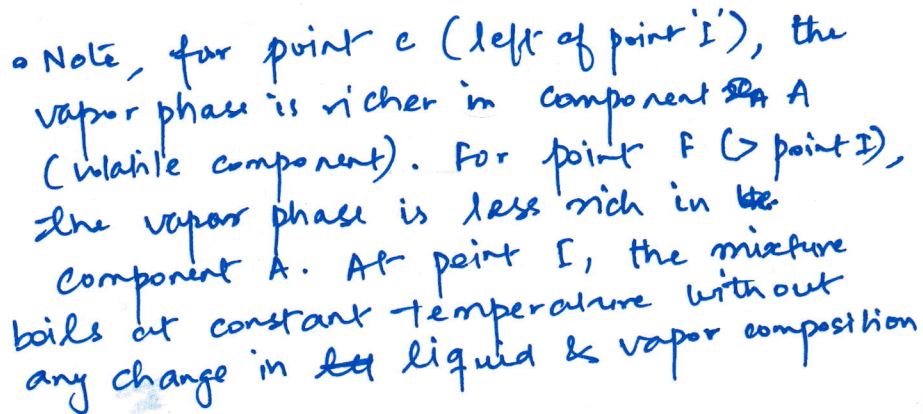 • Note, for point c (left of point 'I'), the
vapor phase is richer in component A
(volatile component). For point F (> point I),
the vapor phase is less rich in
component A. At point I, the mixture
boils at constant temperature without
any change in liquid & vapor composition